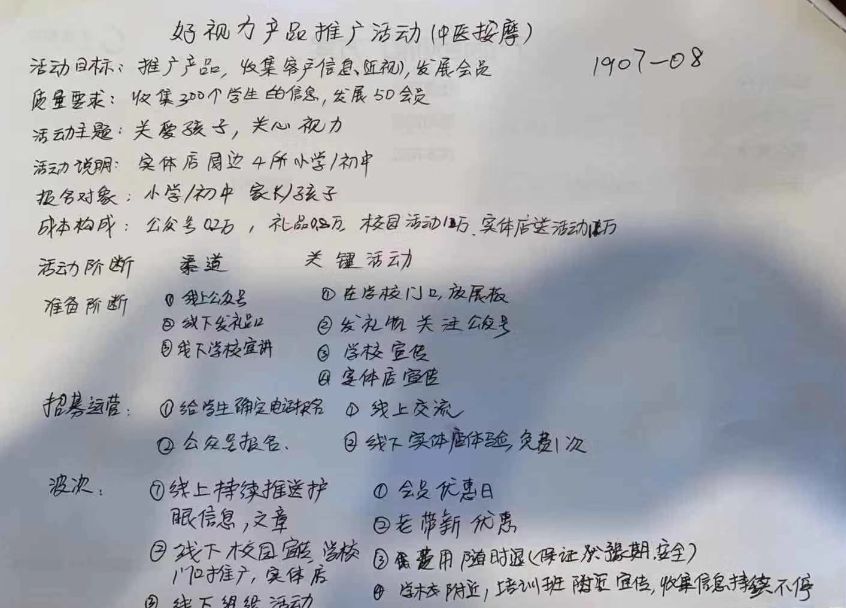 好视力产品推广活动(中医按摩)
1907-08
活动目标: 推广产品, 收集客户信息(近视), 发展会员
质量要求: 收集300个学生的信息, 发展50会员
活动主题: 关爱孩子, 关心视力
活动说明: 实体店周边4所小学/初中
报名对象: 小学/初中 家长/孩子
成本构成: 公众号0.2万, 礼品0.8万 校园活动1万、实体店送活动1万
活动阶断 渠道 关键活动
准备阶断 ①线上公众号 ①在学校门口,放展板
②线下发礼品 ②发礼物 关注公众号
③线下学校宣讲 ③学校宣传
④实体店宣传
招募运营: ①给学生确定电话报名 ①线上交流
②公众号报名. ②线下实体店体验,免费1次
波次: ①线上持续推送护 ①会员优惠日
眼信息,文章 ②老带新优惠
②线下校园宣传 学校 ③费用随时退(保证 安全)
门口推广,实体店 ④学校附近,培训班附近宣传,收集信息持续不停
③线下组织活动